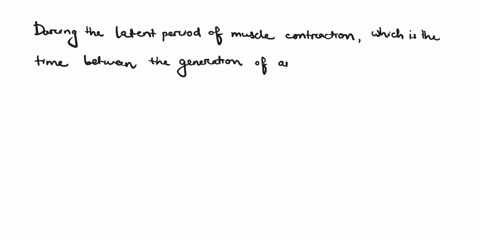 During the latent period of muscle contraction, which is the
time between the generation of as